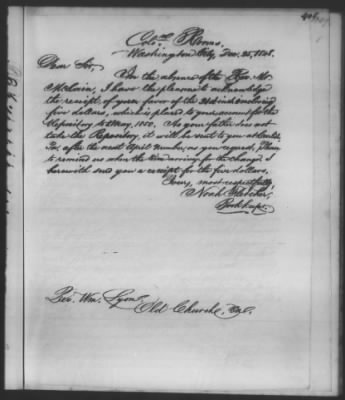 406
Col. Rooms,
Washington City, Dec. 25, 1848.
Dear Sir,
In the absence of the Rev. Mr.
McLain, I have the pleasure to acknowledge
the receipt of your favor of the 21st inst. enclosing
five dollars, which is placed to your account for the
Repository to May, 1850. As your father does not
take the Repository, it will be sent to you at
after the next April number, as you request. Please
to remind us when the time arrives for the change. I
herewith send you a receipt for the five dollars.
Yours, most respectfully,
Noah Fletcher,
Bookkeeper.
Rev. Wm. Lyon,
Old Church,